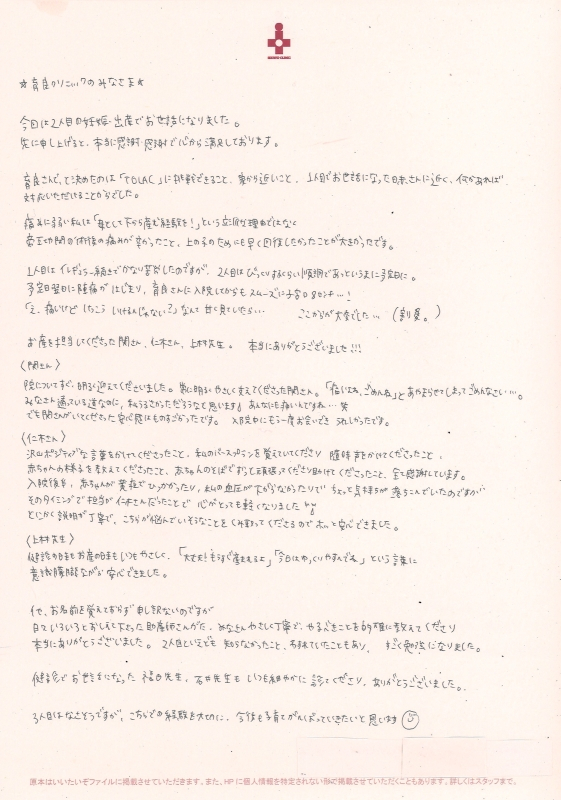 ☆育良クリニックのみなさま☆
今回は2人目の妊娠・出産でお世話になりました。
先に申し上げると、本当に感謝・感謝で心から満足しております。
育良さんで、と決めたのは「TOLAC」に挑戦できること、家から近いこと、1人目でお世話になった日赤さんに近く、何かあれば
対応いただけることからでした。
痛みに弱い私は「母として下から産む経験を!」という立派な理由ではなく
帝王切開の術後の痛みが辛かったこと、上の子のためにも早く回復したかったことが大きかったです。
1人目はイレギュラー続きでかなり苦労したのですが、2人目はびっくりするくらい順調であっというまに予定日に。
予定日翌日に陣痛がはじまり、育良さんに入院してからもスムーズに子宮口8センチ…!
「え、痛いけど けっこう いけるんじゃない?」なんて 甘く見ていたら… ここからが大変でした…(割愛。)
お産を担当してくださった関さん、仁木さん、上村先生。 本当にありがとうございました!!!
〈関さん〉
院についてすぐ、明るく迎えてくださいました。常に明るく やさしく支えてくださった関さん。「痛いよね、ごめんね」とあやまらせてしまってごめんなさい…。
みなさん通っている道なのに、私うるさかっただろうなと思います。あんなにも痛いんですね…笑
でも関さんがいてくださった安心感はものすごかったです。入院中にもう一度お会いでき うれしかったです。
〈仁木さん〉
沢山ポジティブな言葉をかけてくださったこと、私のバースプランを覚えていてくださり 随時声をかけてくださったこと、
赤ちゃんの様子を教えてくださったこと、赤ちゃんのそばでずっと頑張ってくださり助けてくださったこと、全て感謝しています。
入院後半、赤ちゃんが黄疸でひっかかったり、私の血圧が下がらなかったりで ちょっと気持ちが落ちこんでいたのですが
そのタイミングで担当が仁木さんだったことで 心がとっても軽くなりました
とにかく説明が丁寧で、こちらが悩んでいそうなことをくみとってくださるので ホッと安心できました。
〈上村先生〉
健診の日もお産の日もいつもやさしく、「大丈夫!もうすぐ産まれるよ」「今日はゆっくりやすんでね」という言葉に
意識朦朧ながらも安心できました。
他、お名前を覚えておらず申し訳ないのですが
日々いろいろとおしえて下さった助産師さんがた、みなさんやさしく丁寧で、やるべきことを的確に教えてくださり
本当にありがとうございました。2人目といえども 知らなかったこと、忘れていたこともあり、すごく勉強になりました。
健診でお世話になった 福田先生、石井先生も いつも細やかに 診てくださり、ありがとうございました。
3人目はなさそうですが、こちらでの経験を大切に、今後も子育てがんばっていきたいと思います
原本はいいたいぞファイルに掲載させていただきます。また、HPに個人情報を特定されない形で掲載させていただくこともあります。詳しくはスタッフまで。